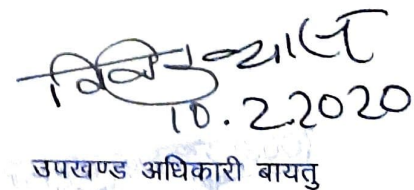 10.2.2020
उपखण्ड अधिकारी बायतु